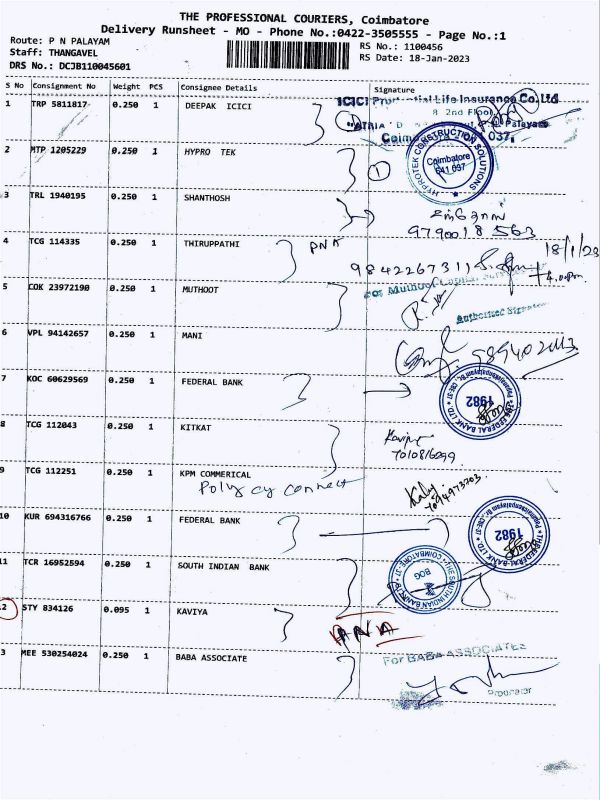 THE PROFESSIONAL COURIERS, Coimbatore
Delivery Runsheet - MO - Phone No.:0422-3505555 - Page No.:1
Route: P N PALAYAM
Staff: THANGAVEL
DRS No.: DCJB110045601
RS No.: 1100456
RS Date: 18-Jan-2023
S No Consignment No Weight PCS Consignee Details Signature
1 TRP 5811817 0.250 1 DEEPAK ICICI
ICICI Prudential Life Insurance Co. Ltd
2nd Floor
Coim 037.
2 MTP 1205229 0.250 1 HYPRO TEK
1
HYPROTEK CONSTRUCTION SOLUTIONS
Coimbatore
641 037
3 TRL 1940195 0.250 1 SHANTHOSH
9790018563
4 TCG 114335 0.250 1 THIRUPPATHI PNP
18/1/23
9842267311
5 COK 23972190 0.250 1 MUTHOOT
For Muthoot
Authorised
6 VPL 94142657 0.250 1 MANI
7 KOC 60629569 0.250 1 FEDERAL BANK
THE FEDERAL BANK LTD.
1982
8 TCG 112043 0.250 1 KITKAT
9 TCG 112251 0.250 1 KPM COMMERICAL
Policy connect
10 KUR 694316766 0.250 1 FEDERAL BANK
THE FEDERAL BANK LTD.
1982
11 TCR 16952594 0.250 1 SOUTH INDIAN BANK
THE SOUTH INDIAN BANK COIMBATORE-37
BOG
12 STY 834126 0.095 1 KAVIYA
PNA
3 MEE 530254024 0.250 1 BABA ASSOCIATE
For BABA ASSOCIATES